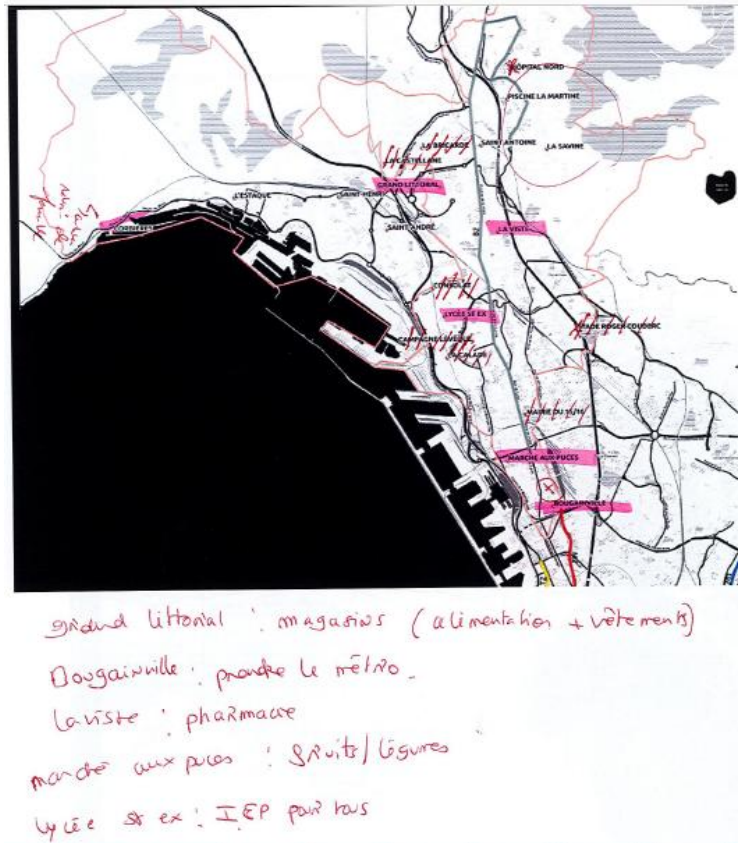 HÔPITAL NORD
PISCINE LA MARTINE
LA BRICARDE
SAINT ANTOINE
LA SAVINE
LA CASTELLANE
GRAND LITTORAL
SAINT-HENRI
L'ESTAQUE
CORBIÈRES
SAINT-ANDRÉ
LA VISTE
B2
CONSOLAT
LYCÉE ST EX
STADE ROGER COUDERC
CAMPAGNE LEVEQUE
LA CALADE
MAIRIE DU 15/16
MARCHÉ AUX PUCES
BOUGAINVILLE
grand littorial : magasins (alimentation + vêtements)
Bougainville : prendre le métro.
la viste : pharmacie
marché aux puces : fruits/légumes
lycée st ex : IEP pour tous